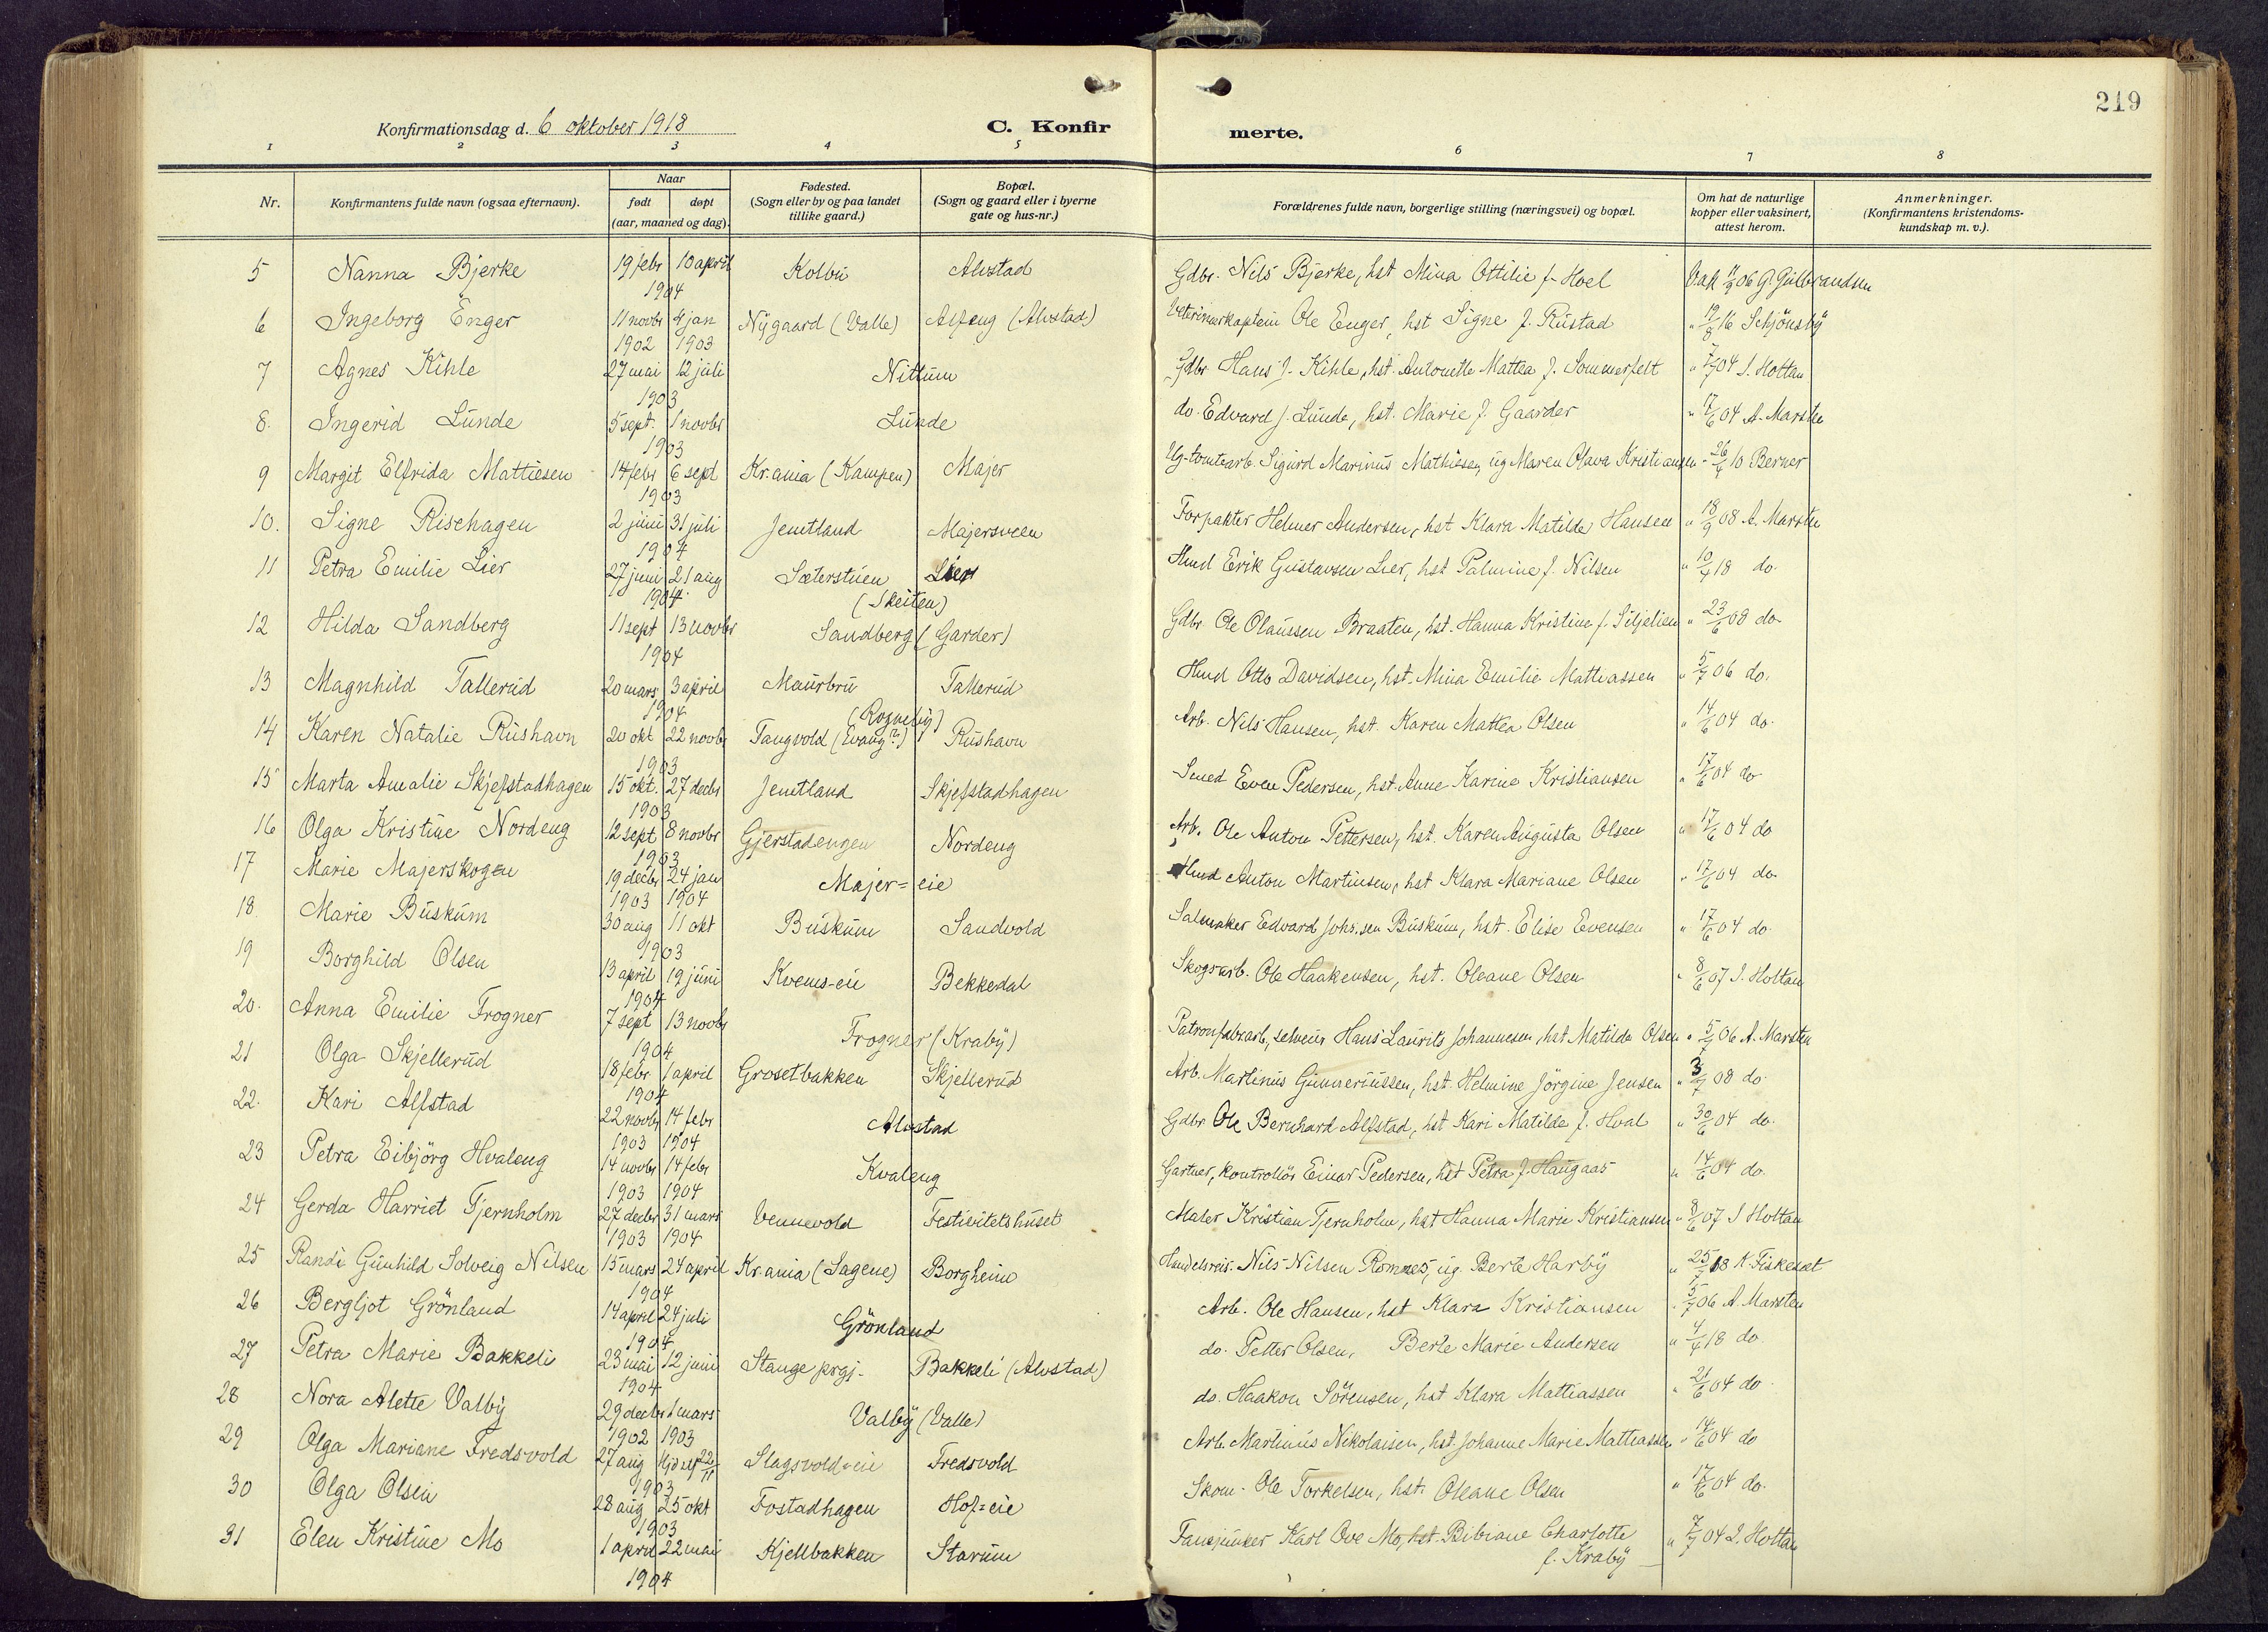 219
Konfirmationsdag d. 6 oktober 1918
C. Konfir merte.
1 2 3 4 5 6 7 8
Nr. Konfirmantens fulde navn (ogsaa efternavn). Naar født døpt (aar, maaned og dag). Fødested. (Sogn eller by og paa landet tillike gaard.) Bopæl. (Sogn og gaard eller i byerne gate og hus-nr.) Forældrenes fulde navn, borgerlige stilling (næringsvei) og bopæl. Om hat de naturlige kopper eller vaksinert, attest herom. Anmerkninger. (Konfirmantens kristendoms-kundskap m. v.).
5 Nanna Bjerke 19 febr 10 april 1904 Kolbu Alvstad Gdbr. Nils Bjerke, hst Mina Ottilie f. Hoel Vak 06 G. Gulbrandsen
6 Ingeborg Enger 11 novbr 1902 4 jan 1903 Nygaard (Valle) Alfeng (Alvstad) Veterinærkaptein Ole Enger, hst Signe f. Rustad " 19/8 16 Schjönsby
7 Agnes Kihle 27 mai 12 juli 1903 Nittum Gdbr Hans J. Kihle, hst. Antonette Mattea f. Sommerfelt " 7/7 04 I. Holtan
8. Ingerid Lunde 5 sept. 1 novbr 1903 Lunde do. Edvard J. Lunde, hst. Marie f. Gaarder " 17/6 04 A. Marsten
9 Margit Elfrida Mattiesen 14 febr 6 sept 1903 Kr.ania (Kampen) Majer Ug. tomtearb. Sigurd Marinus Mathiesen, ug Maren Olava Kristiansen " 26/4 10 Berner
10. Signe Rischagen 2 juni 31 juli 1904 Jemtland Majersveen Forpakter Helmer Andersen, hst Klara Matilde Hansen " 18/9 08 A. Marsten
11 Petra Emilie Lier 27 juni 21 aug 1904. Sæterstuen Lier Hmd Erik Gustavsen Lier, hst Palmine f. Nilsen " 10/4 18 do.
12 Hilda Sandberg 11 sept 13 novbr 1904 (Skeiten) Sandberg (Garder) Gdbr. Ole Olaussen Braaten, hst. Hanna Kristine f. Siljelien " 23/6 08 do
13 Magnhild Tallerud 20 mars 3 april 1904 Maurbru Tallerud Hmd Otto Davidsen, hst. Mina Emilie Mathiassen " 5/7 06 do.
14 Karen Natalie Rushavn 20 okt 22 novbr 1903 Tangvold (Evang?) (Rogneby) Rushavn Arb. Nils Hansen, hst. Karen Mattea Olsen " 14/6 04 do.
15 Marta Amalie Skjefstadhagen 15 okt. 27 decbr 1903 Jemtland Skjefstadhagen Smed Even Pedersen, hst. Anne Karine Kristiansen " 17/6 04 do
16 Olga Kristine Nordeng 12 sept 8 novbr 1903 Gjerstadengen Nordeng Arb. Ole Anton Pettersen, hst. Karen Augusta Olsen " 17/6 04 do
17 Marie Majerskogen 19 decbr 1903 24 jan 1904 Majer=eie Hmd Anton Martinsen, hst Klara Mariane Olsen " 17/6 04 do
18. Marie Buskum 30 aug 11 okt 1903 Buskum Sandvold Salmaker Edvard Johs.sen Buskum, hst. Elise Evensen " 17/6 04 do.
19 Borghild Olsen 13 april 19 juni 1904 Kvems-eie Bekkedal Skogsarb. Ole Haakensen, hst. Oleane Olsen " 8/6 07 I. Holtan
20. Anna Emilie Frogner 7 sept 13 novbr 1904 Frogner (Kraby) Patronfabr.arb, selveier Hans Laurits Johannesen, hst Matilde Olsen " 5/7 06 A. Marsten
21 Olga Skjellerud 18 febr 1 april 1904 Grosetbakken Skjellerud Arb. Martinus Gunneriussen, hst. Helmine Jörgine Jensen " 3/7 08 do.
22. Kari Alfstad 22 novbr 1903 14 febr 1904 Alvstad Gdbr Ole Bernhard Alfstad, hst Kari Matilde f. Hval " 30/6 04 do.
23 Petra Eibjörg Hvaleng 14 novbr 1903 14 febr 1904 Kvaleng Gartner, kontrollör Einar Pedersen, hst Petra f. Haugaas " 14/6 04 do.
24 Gerda Harriet Tjernholm 27 decbr 1903 31 mars 1904 Vennevold Festivitetshuset Maler Kristian Tjernholm, hst Hanna Marie Kristiansen " 8/6 07 I Holtan
25 Randi Gunhild Solveig Nilsen 15 mars 24 april 1904 Kr.ania (Sagene) Borgheim Handelsreis. Nils Nilsen Romnes, ug. Berte Harby " 25/7 18 K. Fiskeset
26 Bergljot Grönland 14 april 24 juli 1904 Grönland Arb. Ole Hansen, hst Klara Kristiansen " 5/7 06 A. Marsten
27 Petra Marie Bakkeli 23 mai 12 juni 1904 Stange prgj. Bakkeli (Alvstad) do. Petter Olsen, Berte Marie Andersen " 4/4 18 do.
28 Nora Alette Valby 29 decbr 1902 1 mars 1903 Valby (Valle) do. Haakon Sörensen, hst Klara Mattiassen " 21/6 04 do
29 Olga Mariane Fredsvold 27 aug Hjd 22/11 1903 Slagsvold=eie Fredsvold Arb. Martinus Nikolaisen, hst. Johanne Marie Mattiassen " 14/6 04 do
30 Olga Olsen 28 aug 25 okt 1903 Fostadhagen Hof=eie Skom. Ole Torkelsen, hst. Oleane Olsen " 17/6 04 do.
31 Elen Kristine Mo 1 april 22 mai 1904 Kjellbakken Starum Fanejunker Karl Ove Mo, hst. Bibiane Charlotte f. Kraby " 7/7 04 I. Holtan